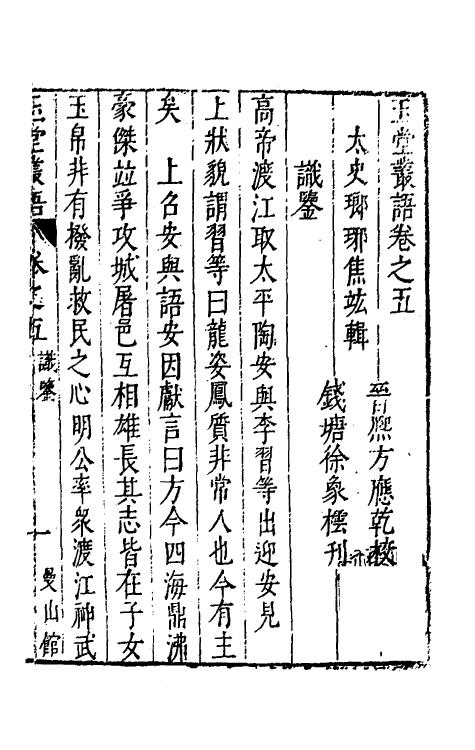 玉堂叢語卷之五
太史瑯琊焦竑輯
晋熈方應乾校
錢塘徐象橒刊
識鑒
高帝渡江取太平陶安與李習等出迎安見
上狀貌謂習等曰龍姿鳳質非常人也今有主
矣　上召安與語安因獻言曰方今四海鼎沸
豪傑竝爭攻城屠邑互相雄長其志皆在子女
玉帛非有撥亂救民之心明公率衆渡江神武
玉堂叢語　卷之五　識鑒　一　曼山館